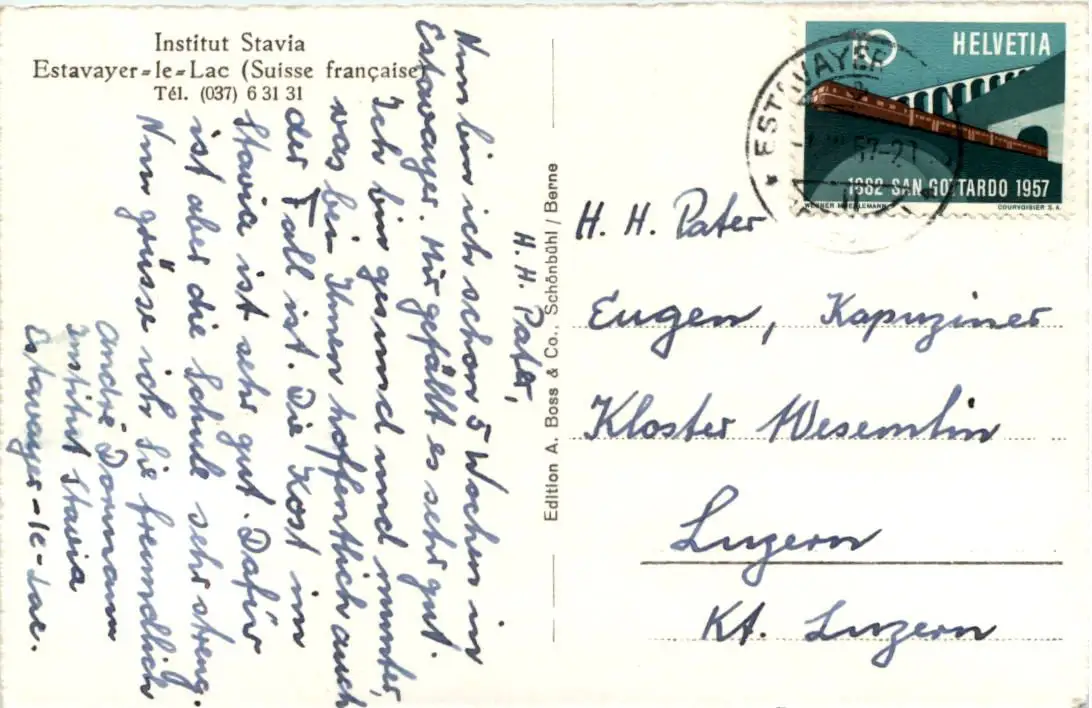 Institut Stavia
Estavayer-le-Lac (Suisse française)
Tél. (037) 6 31 31
H. H. Pater,
Nun bin ich schon 5 Wochen in
Estavayer. Mir gefällt es sehr gut.
Ich bin gesund und munter,
was bei Ihnen hoffentlich auch
der Fall ist. Die Kost im
Stavia ist sehr gut. Dafür
ist aber die Schule sehr streng.
Nun grüsse ich Sie freundlich
André Dormann
Institut Stavia
Estavayer-le-Lac.
Edition A. Boss & Co., Schönbühl / Berne
10 HELVETIA
1882 SAN GOTTARDO 1957
WERNER COURVOISIER S.A.
ESTAVAYER
H. H. Pater
Eugen, Kapuziner
Kloster Wesemlin
Luzern
Kt. Luzern